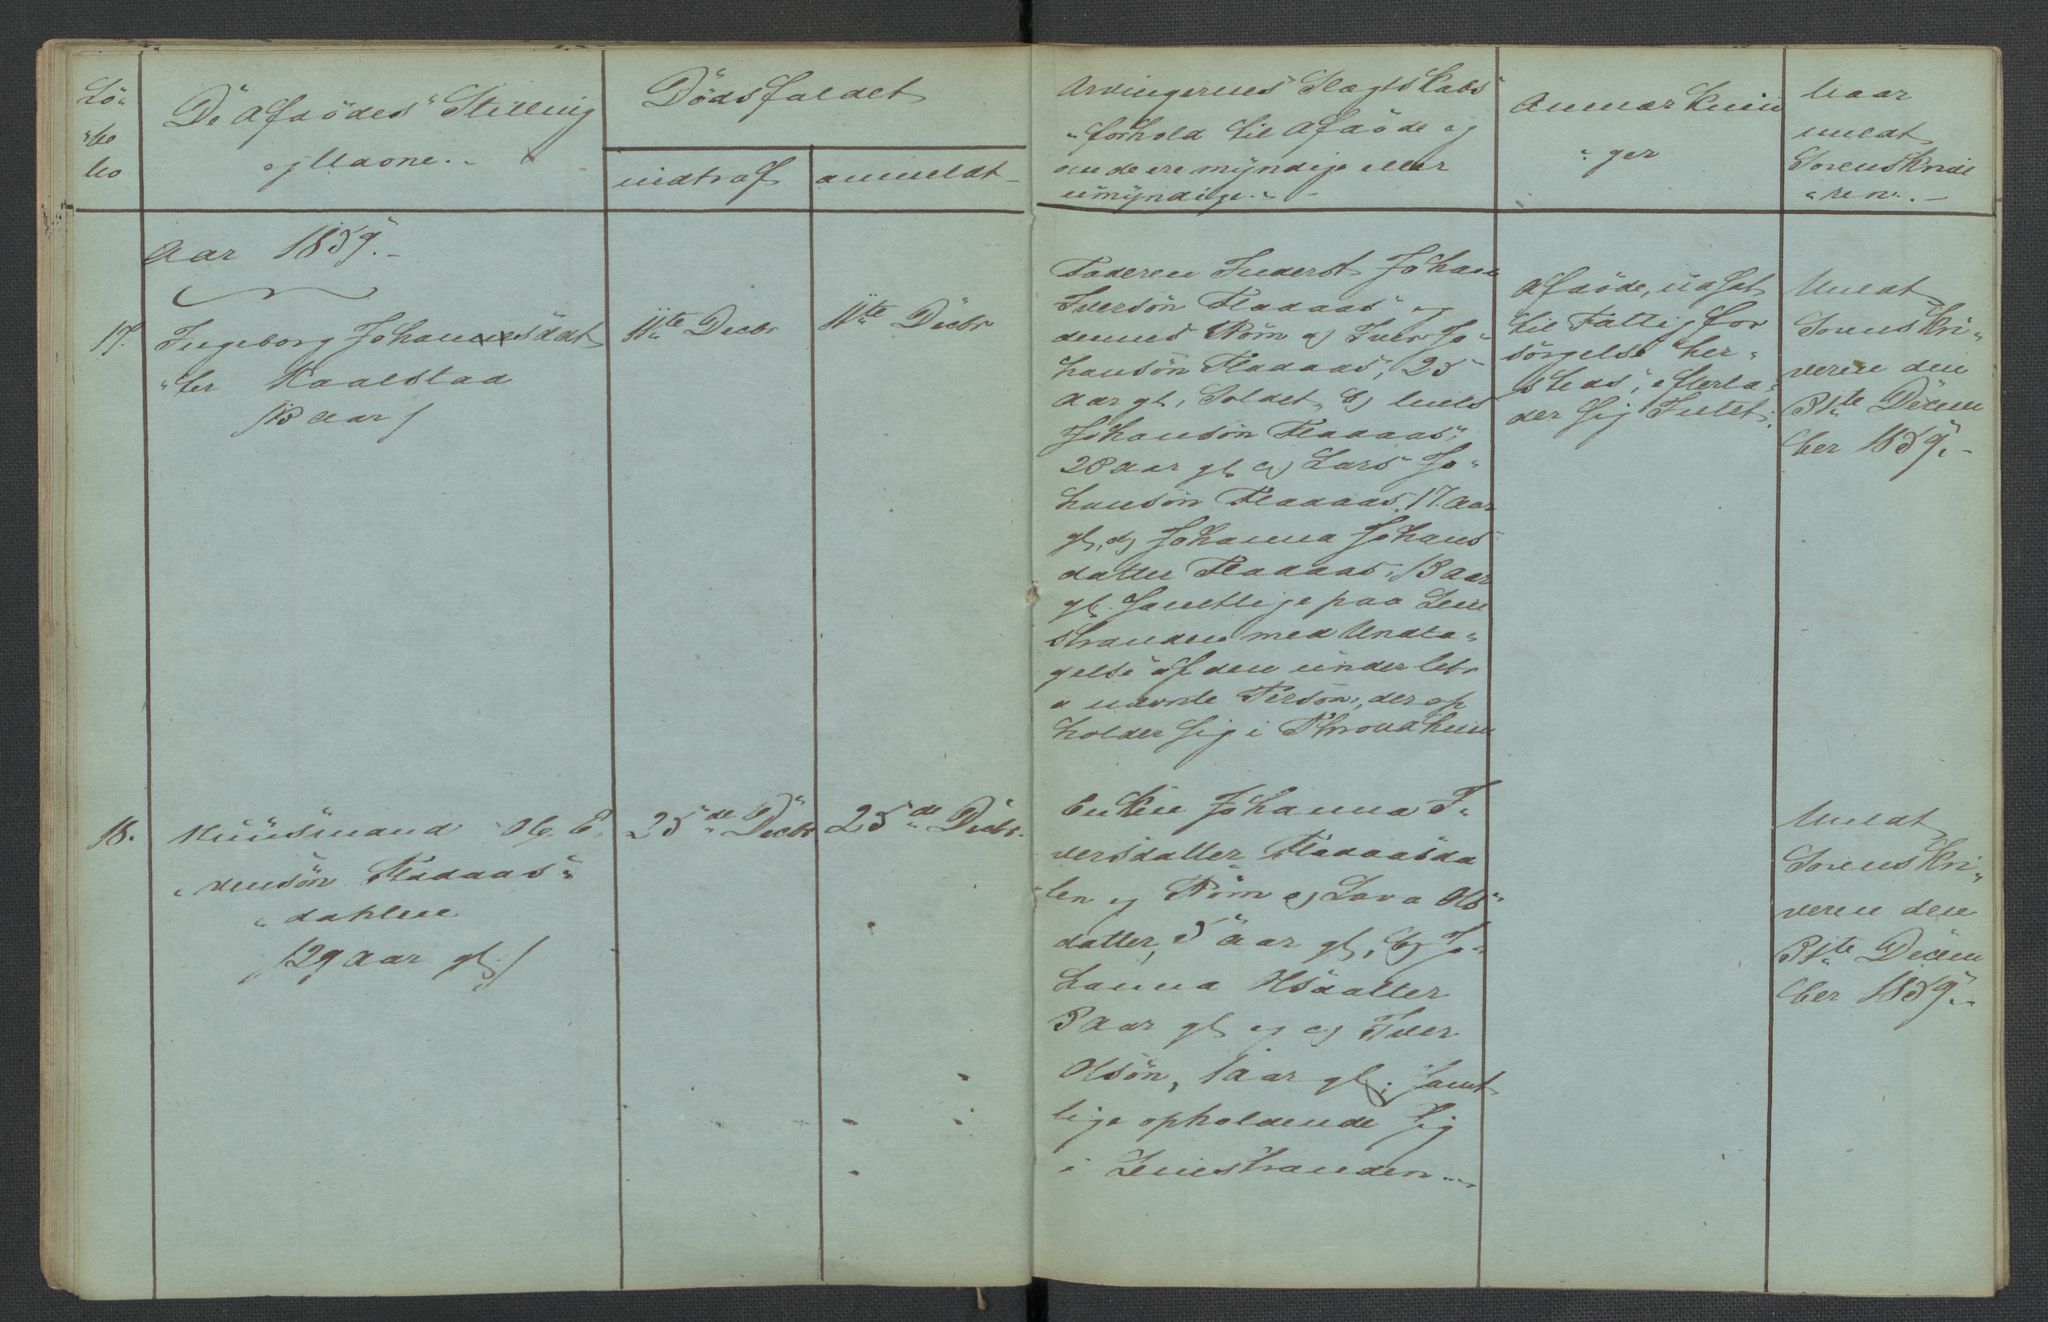 Lö-
be
No
De Afdödes Stilling
og Navne.
Dödsfaldet
indtraf
anmeldt
Arvingernes Slægtskabs
forhold til Afdöde og
om de ere myndige eller
umyndige.
Anmærknin
ger
Naar
meldt
Sorenskrive
ren.
Aar 1859.
17.
Ingeborg Johannesdat
ter Kaalstad
11te Decbr
11te Decbr
Faderen Inderst Johan
Iversön Flaaaas og
dennes Börn a) Iver Jo
hansön Flaaaas, 25
Aar gl, Soldat, b) Niels
Johansön Flaaaas,
20 Aar gl, c) Lars Jo
hansön Flaaaas, 17 Aar
gl, d) Johanna Johans
datter Flaaaas, 13 Aar
gl. Samtlige paa Lein
stranden med Undta
gelse af den under Litr
a nævnte Person, der op
holder sig i Throndhiem
Afdöde, udsat
til Fattigfor
sörgelse her
steds, efterla
der sig Intet.
Meldt
Sorenskri
veren den
31te Decem
ber 1859.
18.
Huusmand Ole E
vensön Flaaaas
dahlen
/29 Aar gl/
25de Decbr
25de Decbr.
Enken Johanna I
versdatter Flaaaasda
len og Börn a) Lava Ols
datter, 5 Aar gl, b) Jo
hanna Olsdatter
3 Aar gl og c) Iver
Olsön, 1 Aar gl; samt
lige opholdende sig
i Leinstranden
Meldt
Sorenskri
veren den
31te Decem
ber 1859.